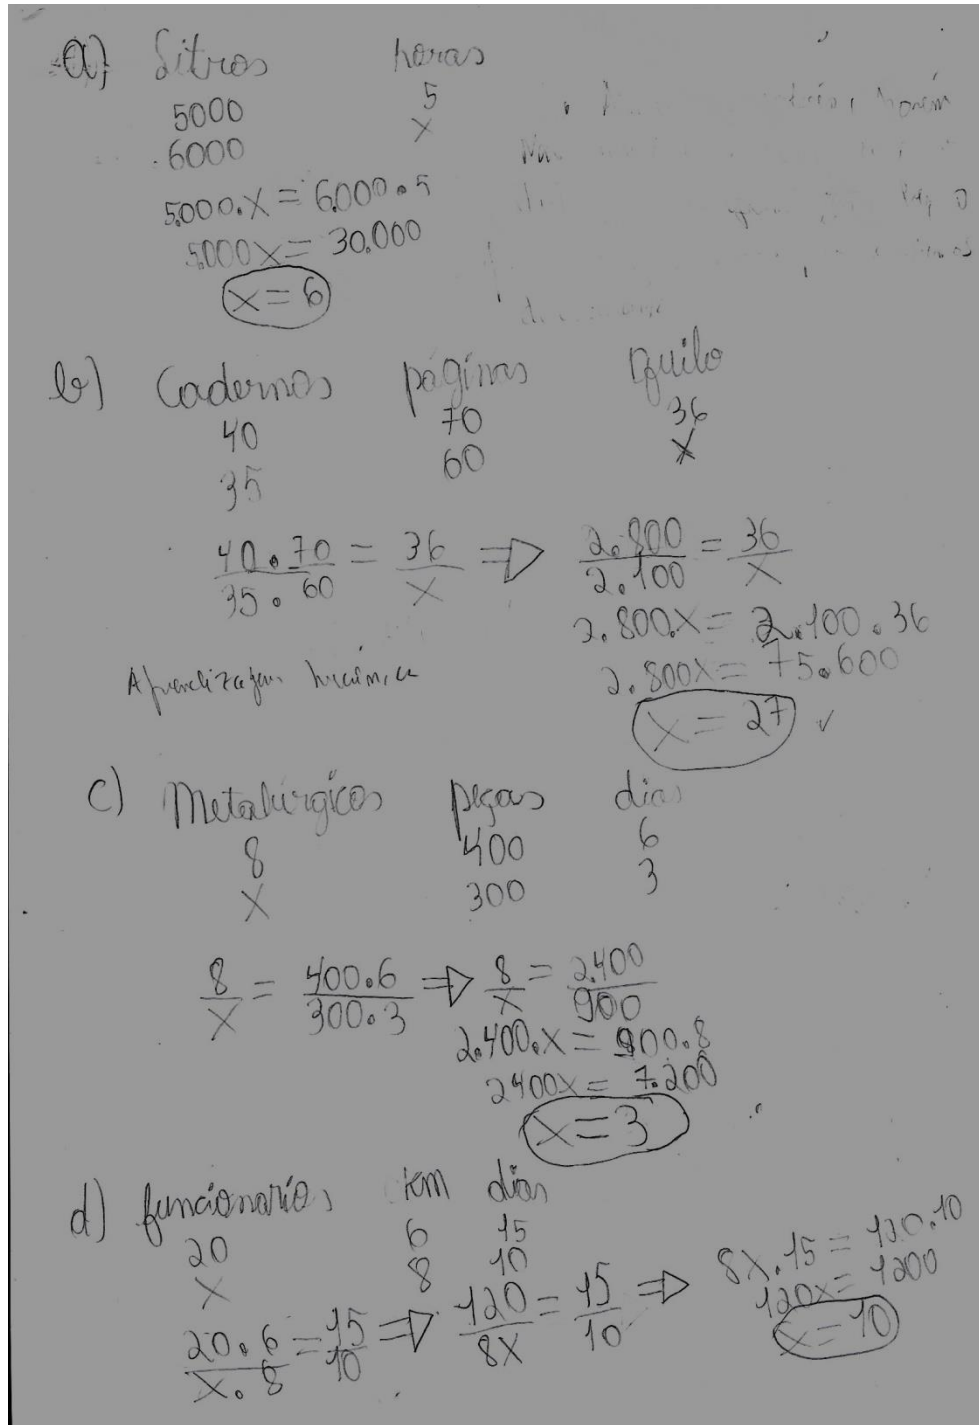 a) Litros horas
5000 5
6000 x
5000.x = 6000.5
5.000x = 30.000
x = 6
b) Cadernos páginas quilo
40 70 36
35 60 x
40.70/35.60 = 36/x ⇒ 2.800/2.100 = 36/x
2.800.x = 2.100.36
2.800x = 75.600
x = 27 ✓
c) Metalúrgicos peças dias
8 400 6
x 300 3
8/x = 400.6/300.3 ⇒ 8/x = 2.400/900
2.400.x = 900.8
2400x = 7.200
x = 3
d) funcionarios km dias
20 6 15
x 8 10
20.6/x.8 = 15/10 ⇒ 120/8x = 15/10 ⇒ 8x.15 = 120.10
120x = 1200
x = 10